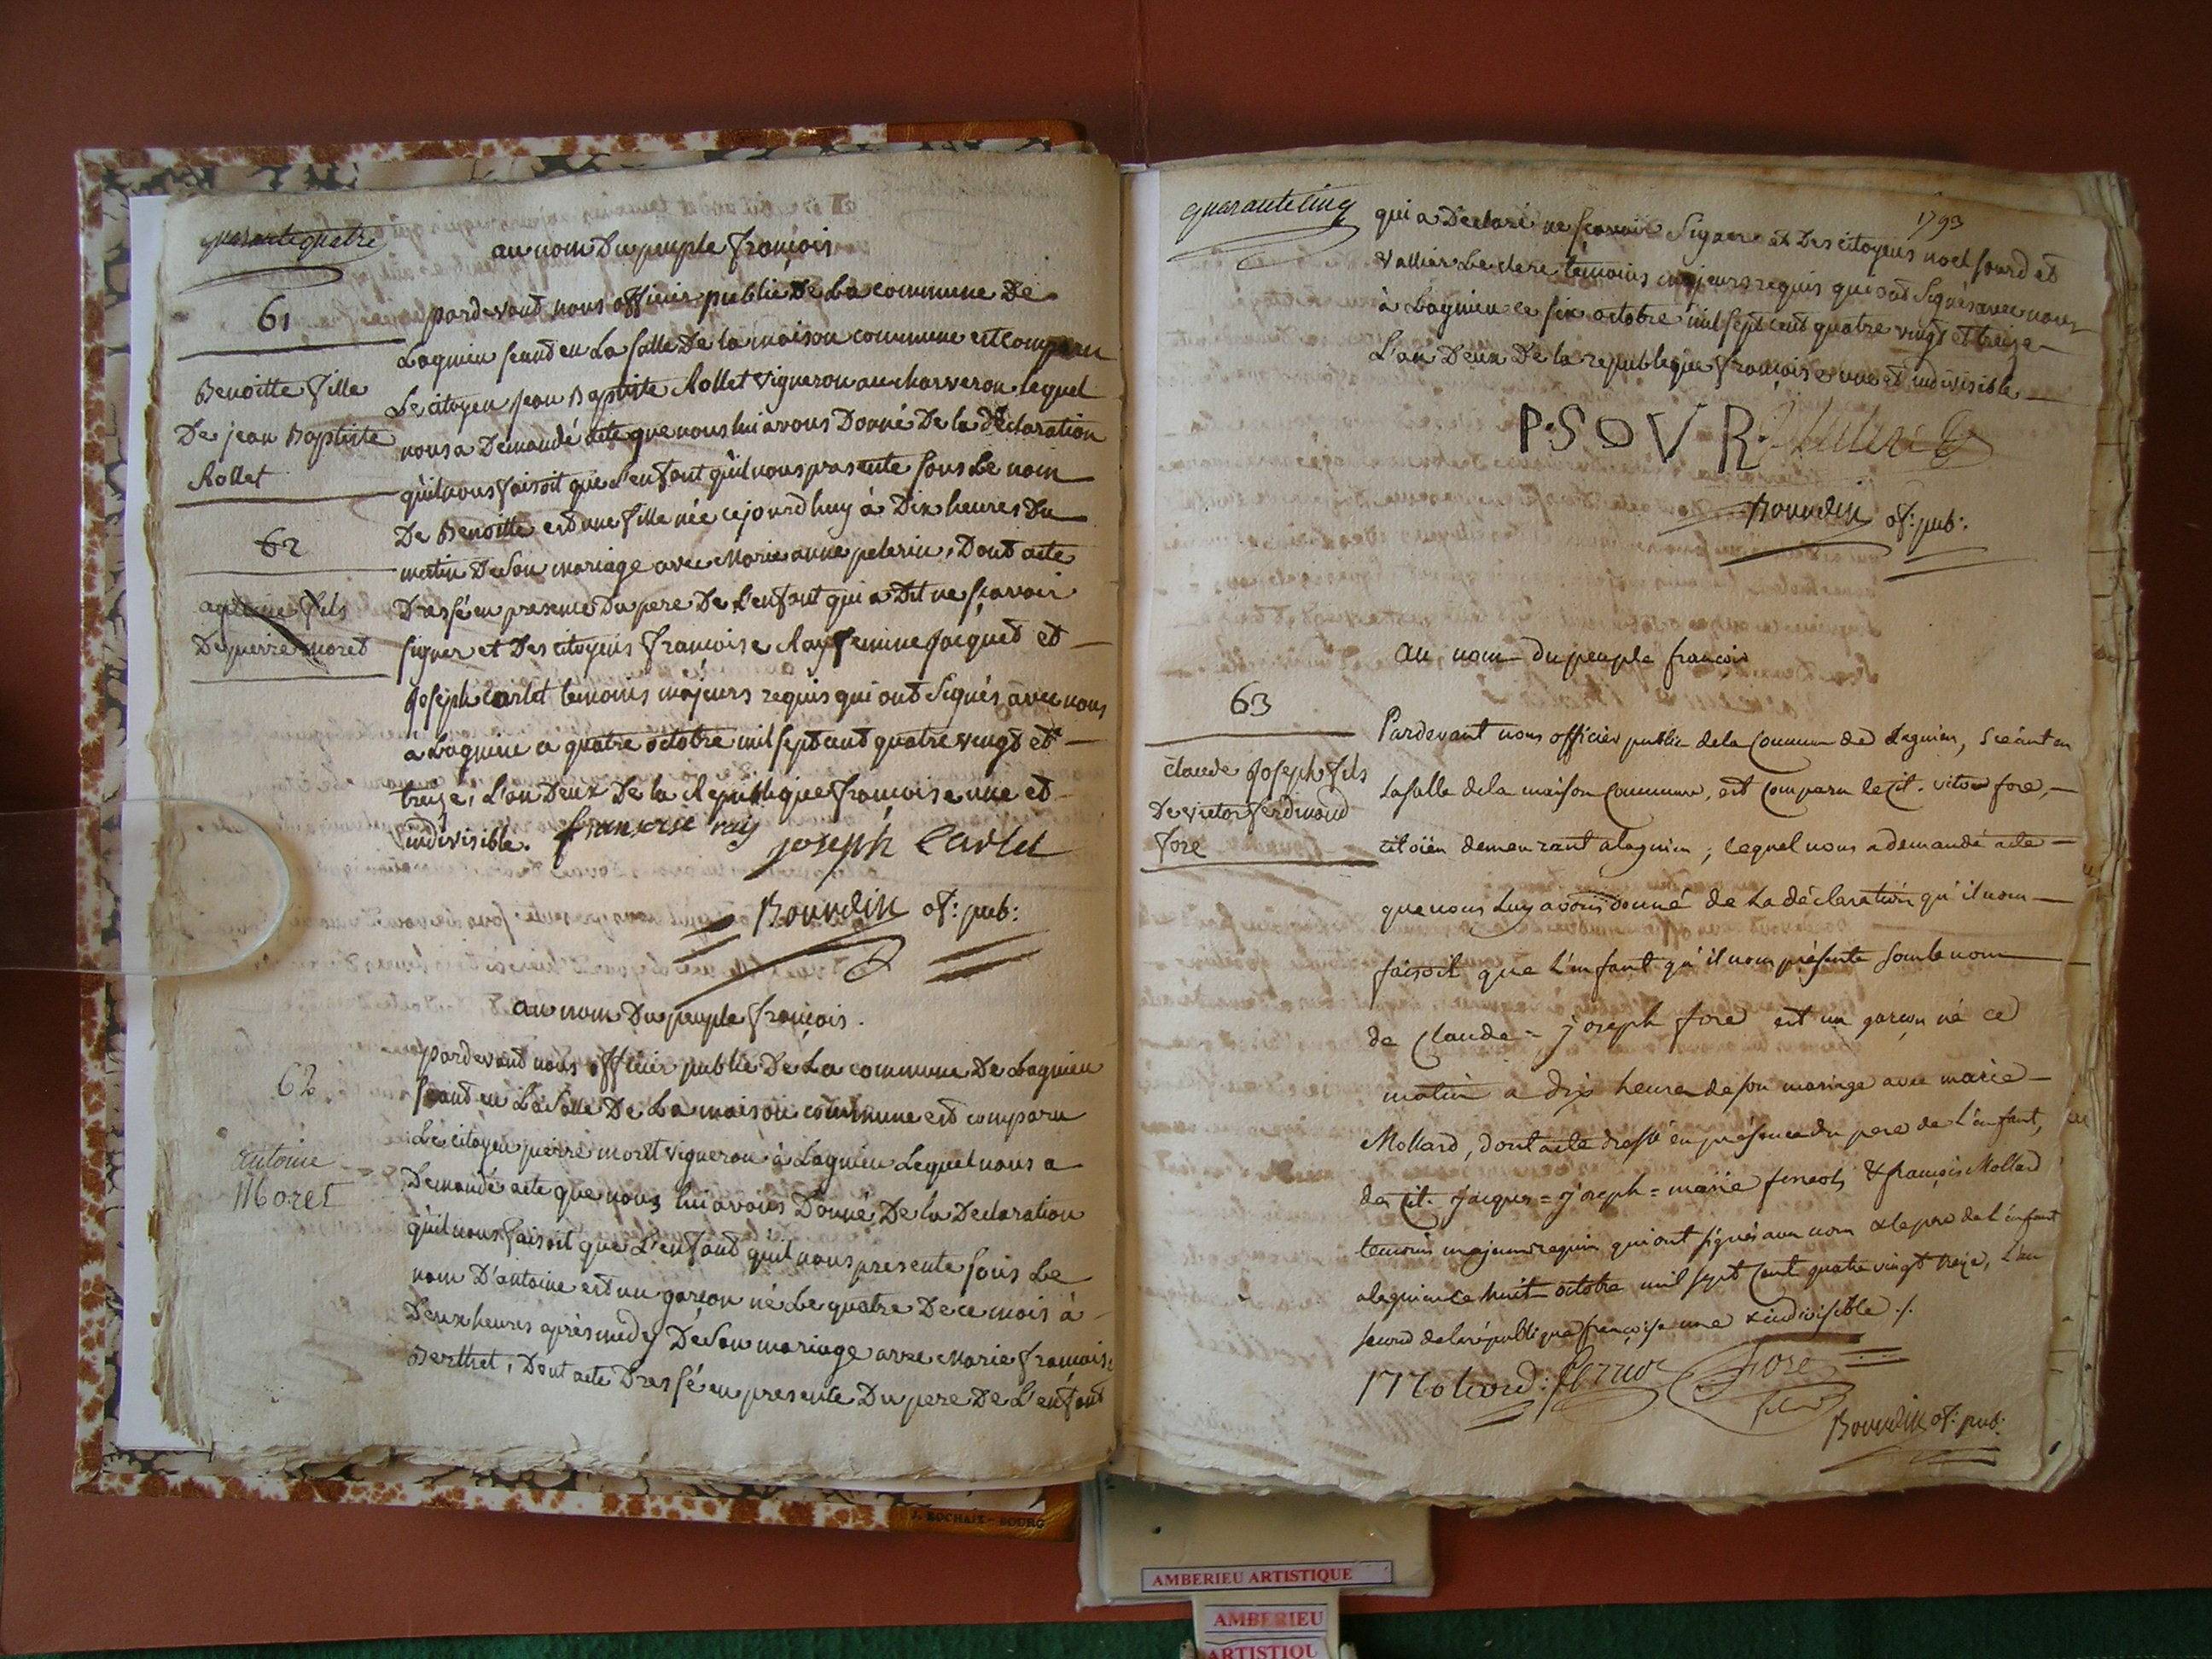 quarante quatre
au nom Du peuple françois
61
pardevant nous officier public De La commune De
Lagnieu seand en La salle De la maison commune est Comparu
Benoitte fille
Le citoyen jean Baptiste Rollet vigneron au charveron lequel
De jean Baptiste
nous a Demandé acte que nous lui avons Donné De la Déclaration
Rollet
qu'il nous faisoit que L'enfant qu'il nous presente sous Le nom
De Benoitte est une fille née cejourdhuy à Dix heures Du
62
matin De son mariage avec Marie anne pelerin, Dont acte
antoine fils
Dressé en presence Du pere De L'enfant qui a Dit ne sçavoir
De pierre moret
signer et Des citoyens francoise Ray femme jacquet et
Joseph Carlet temoins majeurs requis qui ont Signés avec nous
a Lagnieu ce quatre octobre mil sept cent quatre vingt et
treize, L'an Deux De la Republique francoise une et
indivisible. francoise ray
joseph Carlet
Bourdin of: pub:
au nom Du peuple françois.
pardevant nous officier public De La commune De Lagnieu
62
seand en La salle De La maison commune est comparu
Le citoyen pierre moret vigneron à Lagnieu Lequel nous a
antoine
Demandé acte que nous lui avons Donné De la Declaration
Moret
qu'il nous faisoit que L'enfant qu'il nous presente sous Le
nom D'antoine est un garcon né Le quatre De ce mois à
Deux heures après midy De son mariage avec Marie françoise
Berthet, Dont acte Dressé en presence Du pere De L'enfant
quarante cinq
1793
qui a Declaré ne sçavoir Signer et Des citoyens noel sourd et
vallier Leclerc temoins majeurs requis qui ont Signés avec nous
à Lagnieu ce six octobre mil sept cent quatre vingt et treize
L'an Deux De la republique françoise une et indivisible
P. SOVR.
Bourdin of: pub:
au nom du peuple francois
63
Pardevant nous officier public de la Commune de Lagnieu, Séeant en
claude Joseph fils
La salle de la maison Commune, est comparu le cit. victor fore,
De victor ferdinand
fore
citoïen demeurant a lagnieu; lequel nous a demandé acte
que nous Luy avons donné de La déclaration qu'il nous
faisoit que L'enfant qu'il nous présente sous le nom
de Claude = joseph fore est un garçon né ce
matin a dix heure de son mariage avec marie
Mollard, dont acte dressé en présence du pere de l'enfant,
des cit. jacques = joseph = marie & françois Mollard
temoins majeurs requis qui ont signés avec nous & le pere de l'enfant
a lagnieu ce huit octobre mil sept Cent quatre vingt treize, L'an
second de la république françoise une & indivisible ./.
Mollard: fore
Bourdin of: pub:
J. ROCHAIX - BOURG
AMBERIEU ARTISTIQUE
AMBERIEU
ARTISTIQU